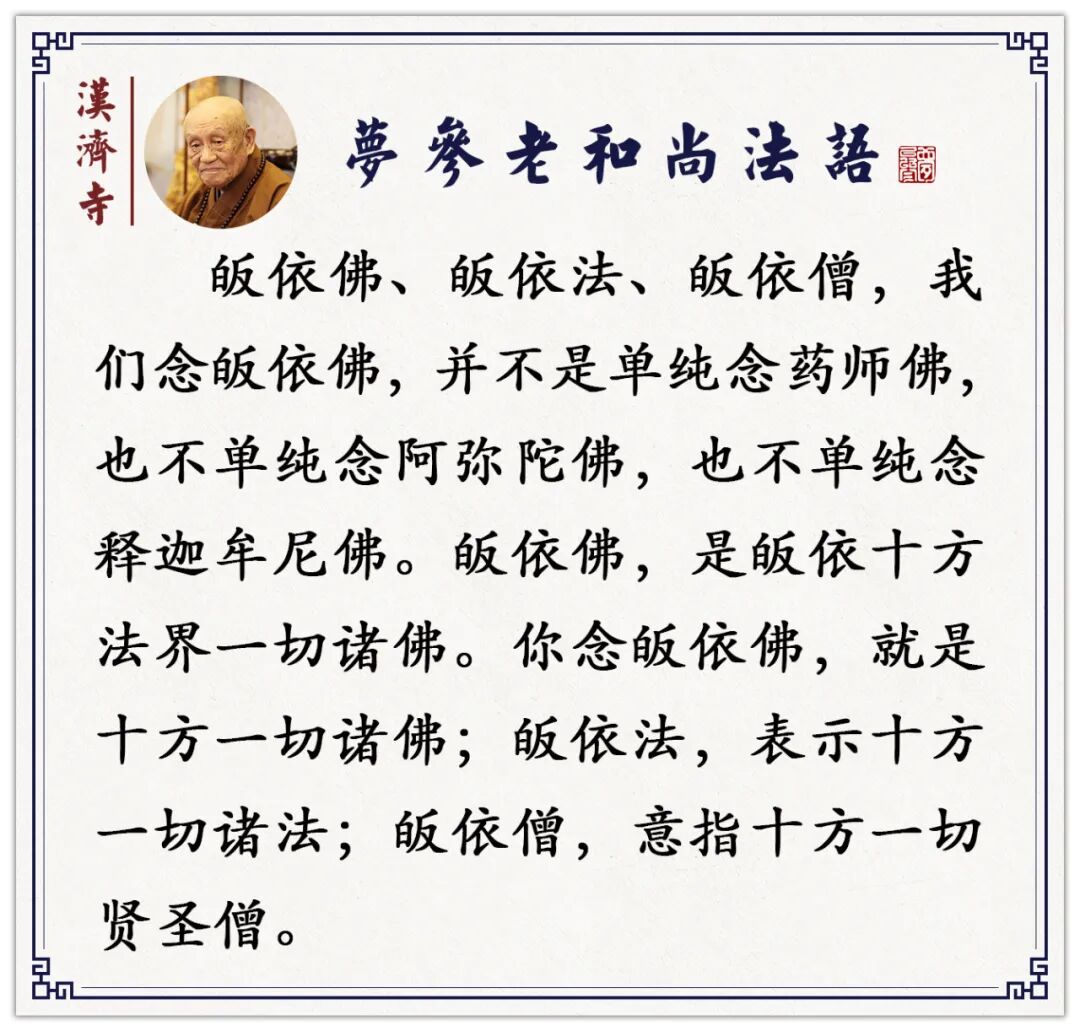 漢濟寺
夢參老和尚法語
皈依佛、皈依法、皈依僧，我
们念皈依佛，并不是单纯念药师佛，
也不单纯念阿弥陀佛，也不单纯念
释迦牟尼佛。皈依佛，是皈依十方
法界一切诸佛。你念皈依佛，就是
十方一切诸佛；皈依法，表示十方
一切诸法；皈依僧，意指十方一切
贤圣僧。